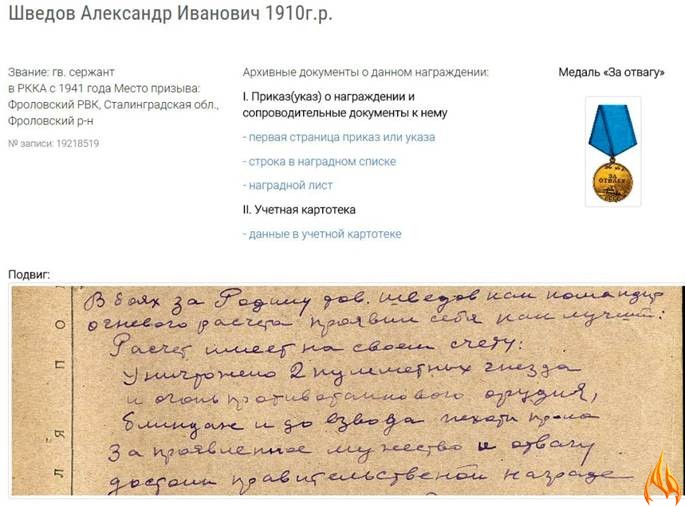 Шведов Александр Иванович 1910г.р.
Звание: гв. сержант
в РККА с 1941 года Место призыва:
Фроловский РВК, Сталинградская обл.,
Фроловский р-н
№ записи: 19218519
Архивные документы о данном награждении:
I. Приказ(указ) о награждении и
сопроводительные документы к нему
- первая страница приказ или указа
- строка в наградном списке
- наградной лист
II. Учетная картотека
- данные в учетной картотеке
Медаль «За отвагу»
ЗА
ОТВАГУ
Подвиг:
В боях за Родину тов. Шведов как командир
огневого расчета проявил себя как лучший:
Расчет имеет на своем счету:
Уничтожено 2 пулеметных гнезда
и огонь противотанкового орудия,
блиндаж и до взвода пехоты пр-ка
За проявленное мужество и отвагу
достоин правительственной награде
л я п о